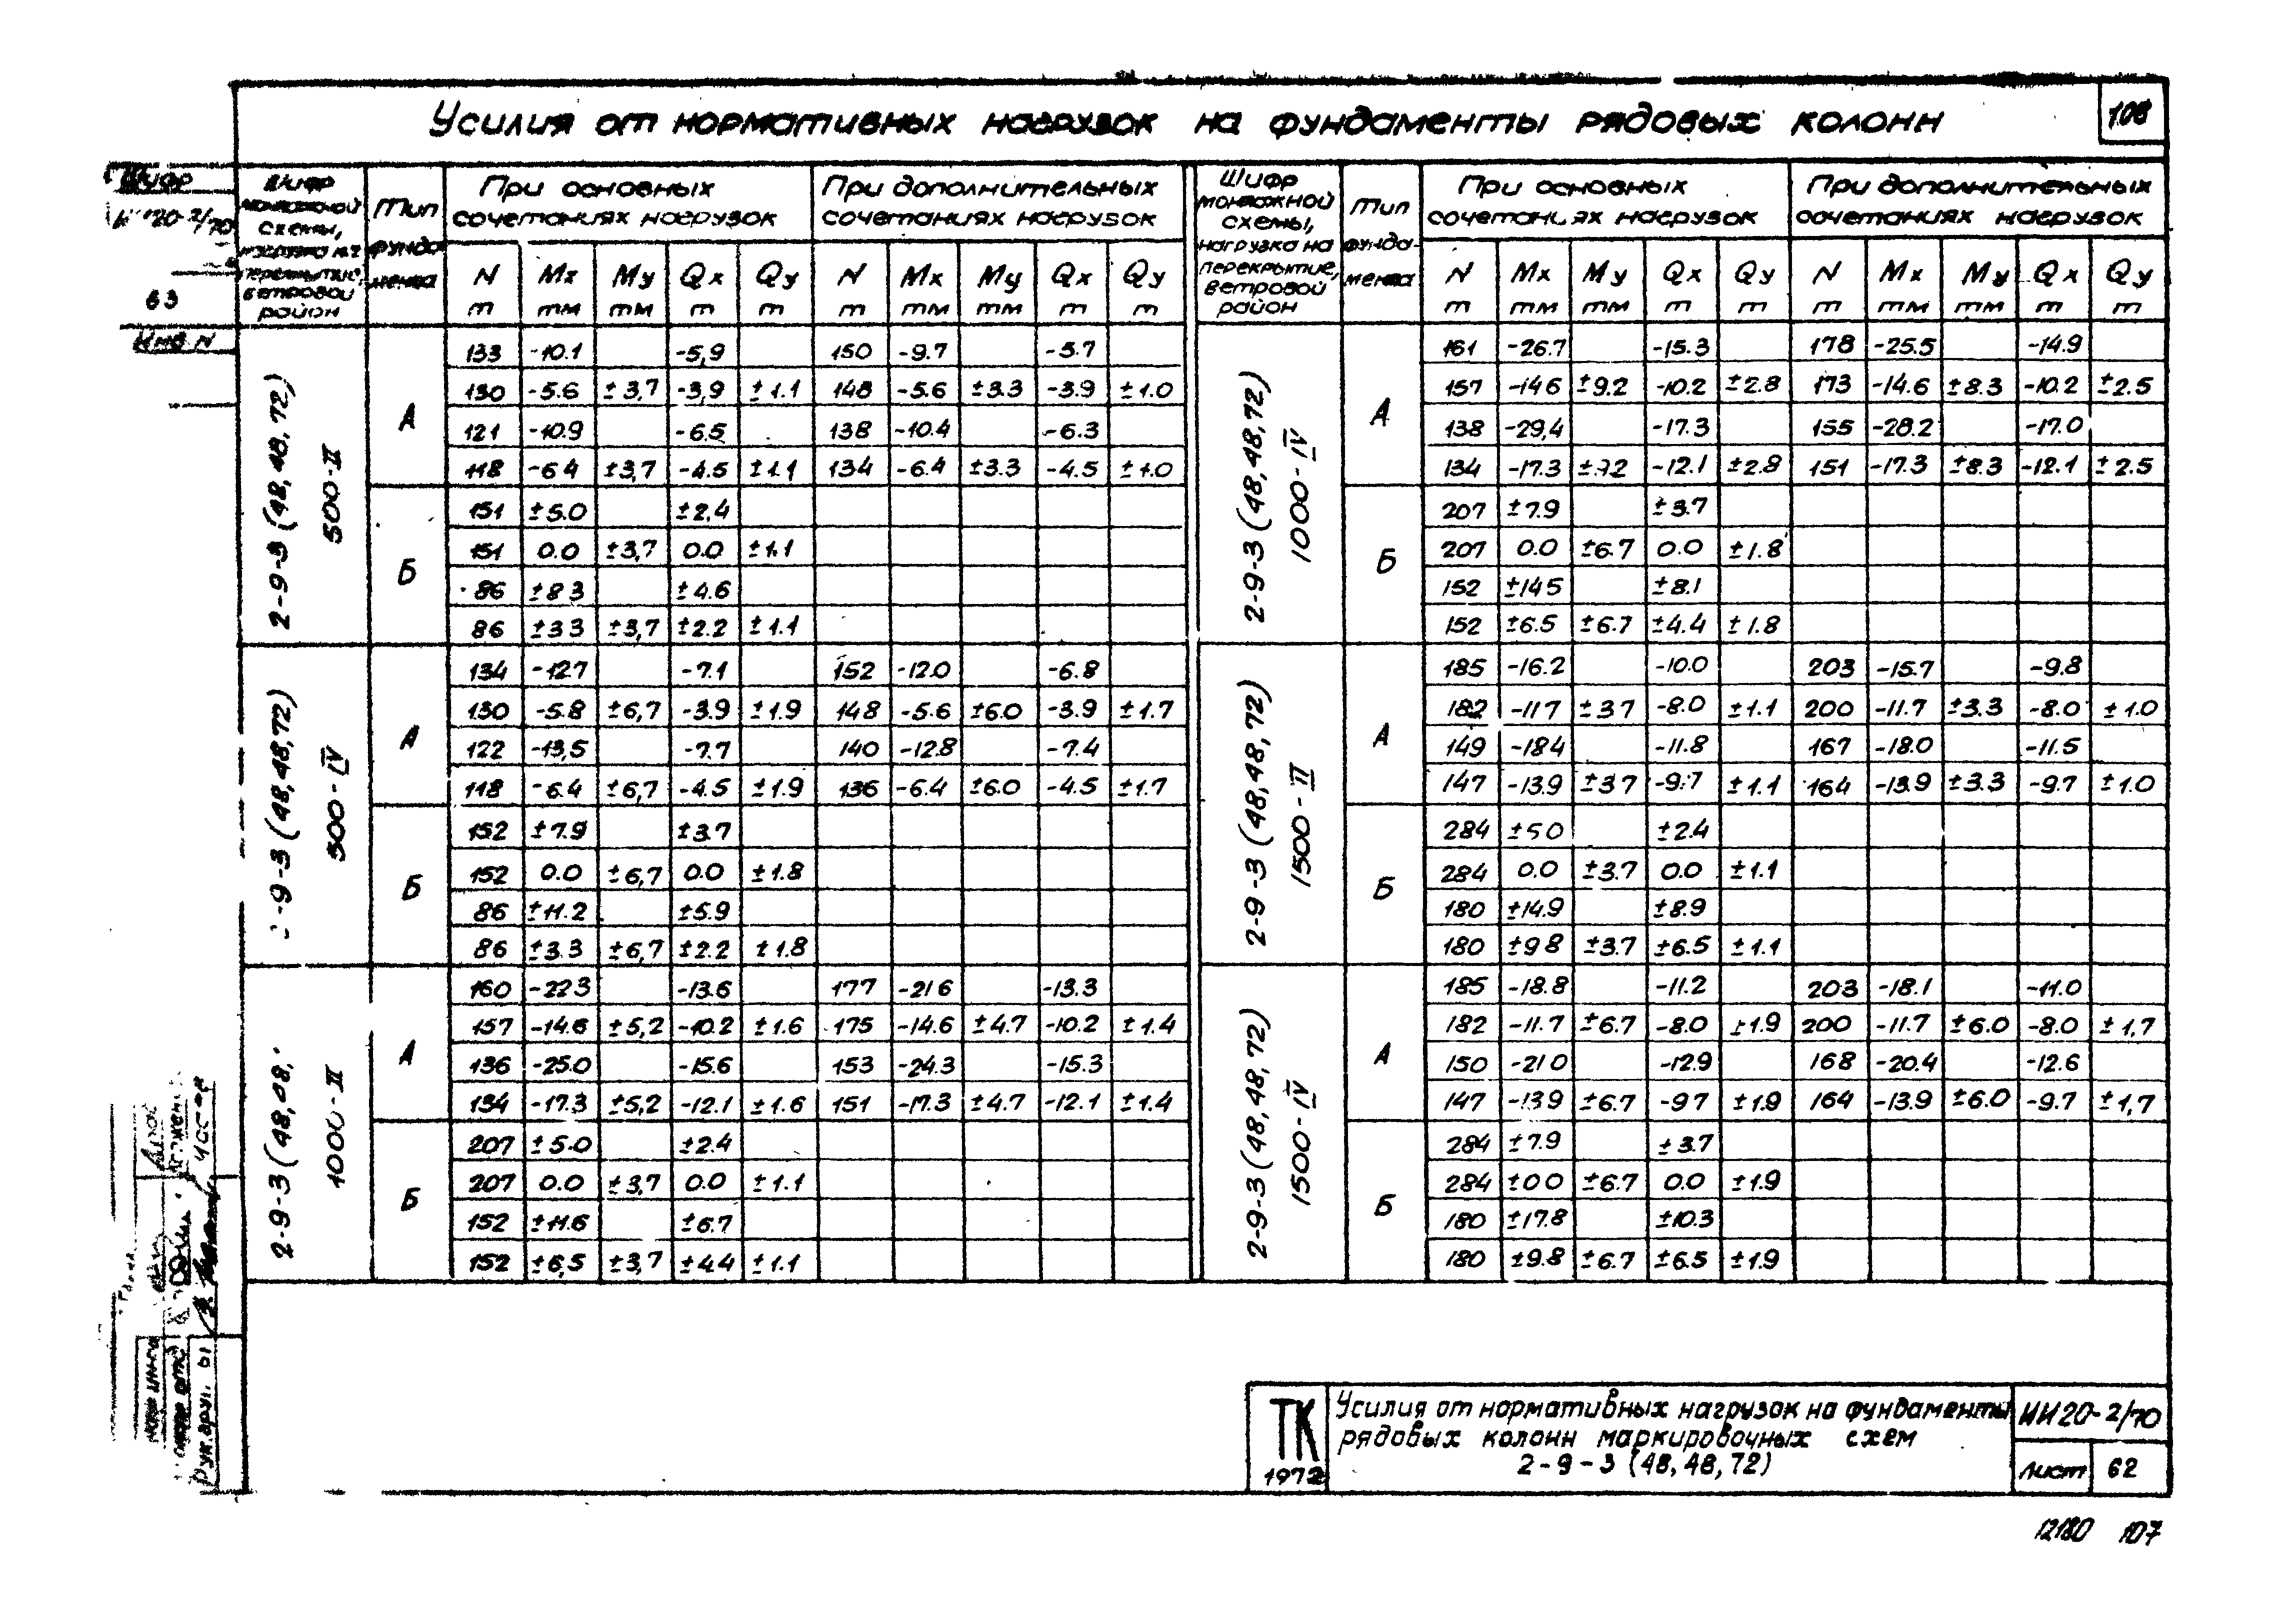 Усилия от нормативных нагрузок на фундаменты рядовых колонн
108
Шифр
ИИ20-2/70
63
Инв N
Шифр монтажной схемы, нагрузка на перекрытие, ветровой район
Тип фундамента
При основных сочетаниях нагрузок
При дополнительных сочетаниях нагрузок
N т Mx тм My тм Qx т Qy т N т Mx тм My тм Qx т Qy т
2-9-3 (48,48,72) 500-II
А
133 -10.1 -5,9 150 -9.7 -5.7
130 -5.6 ±3,7 -3,9 ±1.1 148 -5.6 ±3.3 -3.9 ±1.0
121 -10.9 -6.5 138 -10.4 -6.3
118 -6 4 ±3,7 -4.5 ±1.1 134 -6.4 ±3.3 -4.5 ±1.0
Б
151 ±5.0 ±2.4
151 0.0 ±3,7 0.0 ±1.1
86 ±8 3 ±4.6
86 ±3 3 ±3,7 ±2.2 ±1.1
-9-3 (48,48,72) 500-IV
А
134 -12.7 -7.1 152 -12.0 -6.8
130 -5.8 ±6,7 -3.9 ±1.9 148 -5.6 ±6.0 -3.9 ±1.7
122 -13,5 -7.7 140 -12.8 -7.4
118 -6.4 ±6,7 -4.5 ±1.9 136 -6.4 ±6.0 -4.5 ±1.7
Б
152 ±7.9 ±3.7
152 0.0 ±6,7 0.0 ±1.8
86 ±11.2 ±5.9
86 ±3.3 ±6,7 ±2.2 ±1.8
2-9-3 (48,48, 1000-II
А
160 -22 3 -13.6 177 -21 6 -13.3
157 -14.6 ±5,2 -10.2 ±1.6 175 -14.6 ±4.7 -10.2 ±1.4
136 -25.0 -15.6 153 -24.3 -15.3
134 -17.3 ±5,2 -12.1 ±1.6 151 -17.3 ±4.7 -12.1 ±1.4
Б
207 ±5.0 ±2.4
207 0.0 ±3,7 0.0 ±1.1
152 ±11.6 ±6.7
152 ±6,5 ±3,7 ±4.4 ±1.1
Шифр монтажной схемы, нагрузка на перекрытие, ветровой район
Тип фундамента
При основных сочетаниях нагрузок
При дополнительных сочетаниях нагрузок
N т Mx тм My тм Qx т Qy т N т Mx тм My тм Qx т Qy т
2-9-3 (48,48,72) 1000-IV
А
161 -26.7 -15.3 178 -25.5 -14.9
157 -14 6 ±9.2 -10.2 ±2.8 173 -14.6 ±8.3 -10.2 ±2.5
138 -29,4 -17.3 155 -28.2 -17.0
134 -17.3 -12.1 ±2.8 151 -17.3 ±8.3 -12.1 ±2.5
Б
207 ±7.9 ±3.7
207 0.0 ±6.7 0.0 ±1.8
152 ±14 5 ±8.1
152 ±6.5 ±6.7 ±4.4 ±1.8
2-9-3 (48,48,72) 1500-II
А
185 -16.2 -10.0 203 -15.7 -9.8
182 -11 7 ±3 7 -8.0 ±1.1 200 -11.7 ±3.3 -8.0 ±1.0
149 -18 4 -11.8 167 -18.0 -11.5
147 -13.9 ±3 7 -9.7 ±1.1 164 -13.9 ±3.3 -9.7 ±1.0
Б
284 ±5 0 ±2.4
284 0.0 ±3.7 0.0 ±1.1
180 ±14.9 ±8.9
180 ±9 8 ±3.7 ±6.5 ±1.1
2-9-3 (48,48,72) 1500-IV
А
185 -18.8 -11.2 203 -18.1 -11.0
182 -11.7 ±6.7 -8.0 ±1.9 200 -11.7 ±6.0 -8.0 ±1,7
150 -21 0 -12.9 168 -20.4 -12.6
147 -13 9 ±6.7 -9 7 ±1.9 164 -13.9 ±6.0 -9.7 ±1,7
Б
284 ±7.9 ±3.7
284 ±0 0 ±6.7 0.0 ±1.9
180 ±17.8 ±10.3
180 ±9.8 ±6.7 ±6.5 ±1.9
Рук. гру
ТК
1972
Усилия от нормативных нагрузок на фундаменты
рядовых колонн маркировочных схем
2-9-3 (48,48,72)
ИИ20-2/70
Лист 62
12180 107